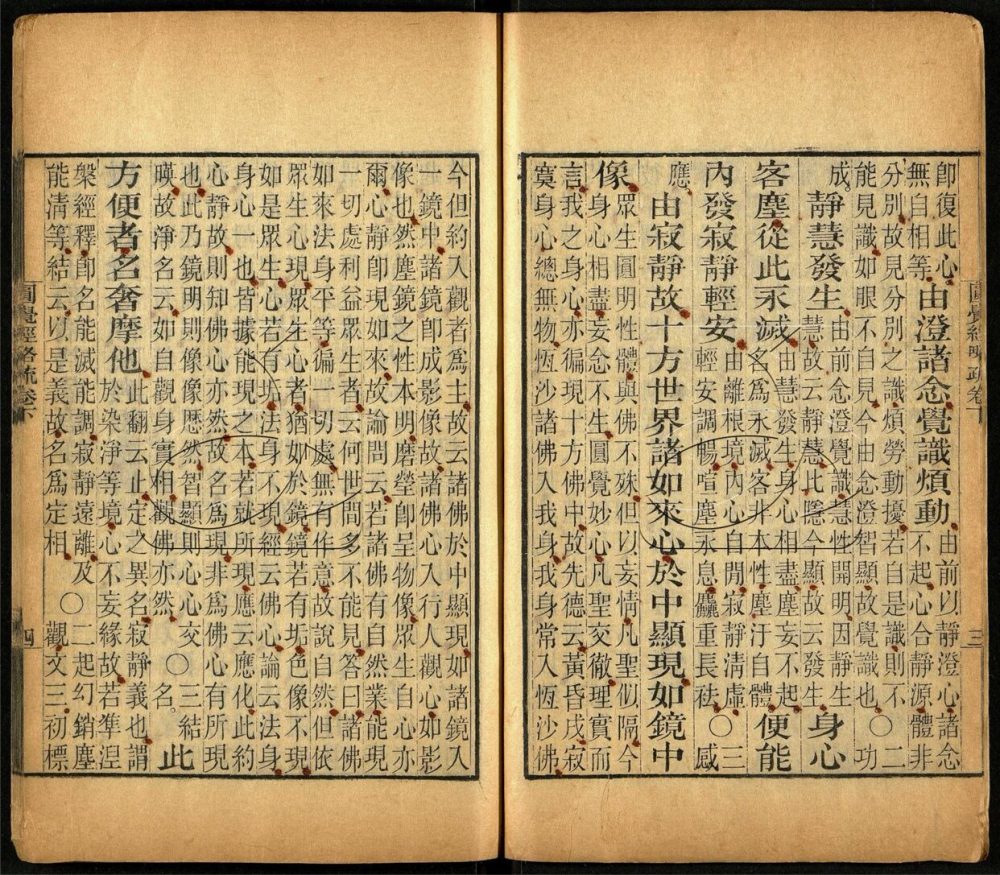 圓覺經略疏卷下 三
卽復此心
無自相等
由澄諸念覺識煩動
由前以靜澄心諸念
不起心合靜源體非
分別故見分別之識煩勞動擾若自是識則不
能見識如眼不自見今由念澄智顯故覺識也
○二功
成。
靜慧發生
由前念澄覺識慧性開明因靜生
慧故云靜慧此隱今顯故云發生
身心
客塵從此永滅
由慧發生身心相盡塵妄不起
名爲永滅客非本性塵汙自體
便能
內發寂靜輕安
由離根境內心自閒寂靜清虛
輕安調暢喧塵永息麤重長祛
○三感
應。
由寂靜故十方世界諸如來心於中顯現如鏡中
像
眾生圓明性體與佛不殊但以妄情凡聖似隔今
身心相盡妄念不生圓覺妙心凡聖交徹理實而
言我之身心亦徧現十方佛中故先德云黃昏戌寂
寞身心總無物恆沙諸佛入我身我身常入恆沙佛
今但約入觀者爲主故云諸佛於中顯現如諸鏡入
一鏡中諸鏡卽成影像故諸佛心入行人觀心如影
像也然塵鏡之性本明磨瑩卽呈物像眾生自心亦
爾心靜卽現如來故論問云若諸佛有自然業能現
一切處利益眾生者云何世間多不能見答曰諸佛
如來法身平等徧一切處無有作意故說自然但依
眾生心現眾生心者猶如於鏡鏡若有垢色像不現
如是眾生心若有垢法身不現經云佛心論云法身
身心一也皆據能現之本若就所現應云應化此約
心靜故則知佛心亦然故名爲現非爲佛心有所現
也此乃鏡明則像像歷然智顯則心心交
暎故淨名云如自觀身實相觀佛亦然
○三結
名。
此
方便者名奢摩他
此翻云止定之異名寂靜義也謂
於染淨等境心不妄緣故若準湼
槃經釋卽名能滅能調寂靜遠離及
能清等結云以是義故名爲定相
○二起幻銷塵
觀文三初標
圓覺經略疏卷下 四